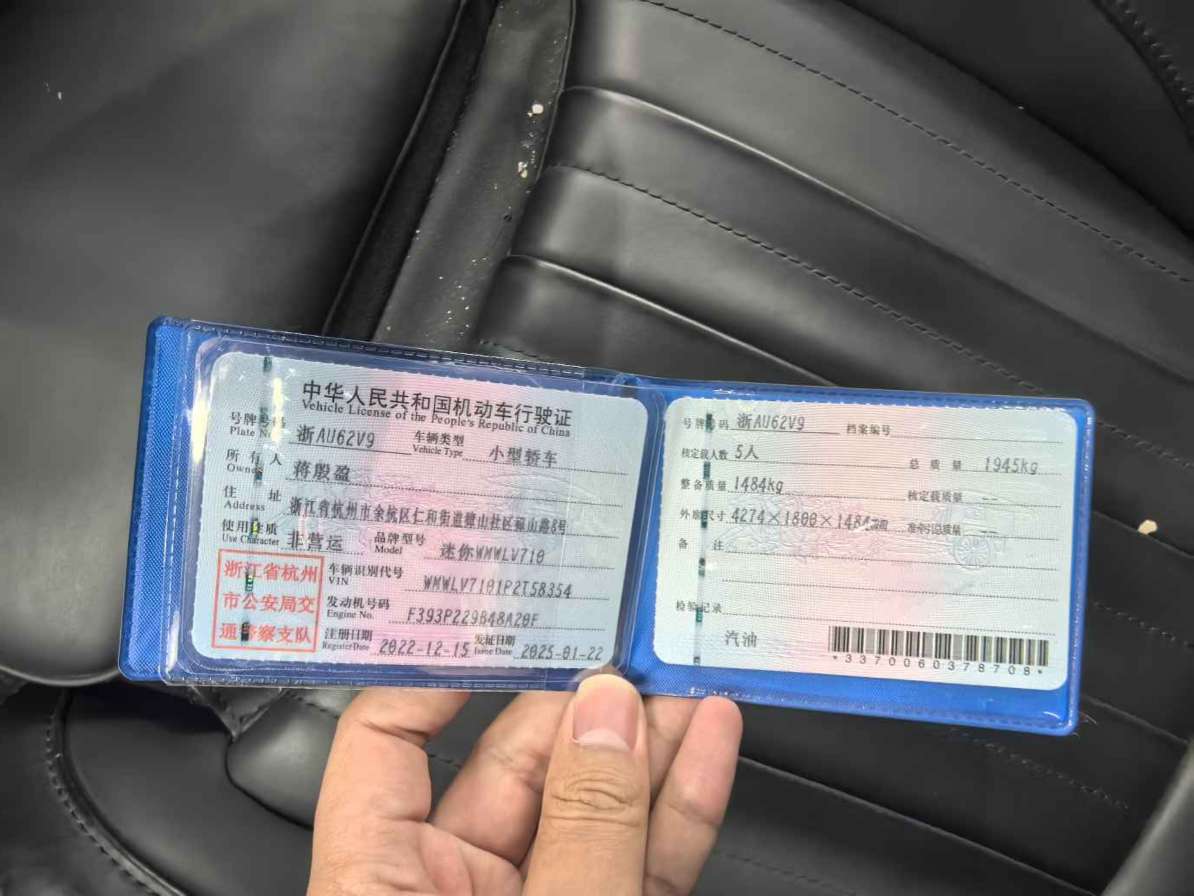 中华人民共和国机动车行驶证
Vehicle License of the People's Republic of China
号牌号码 浙AU62V9 车辆类型 小型轿车
Plate No. Vehicle Type
所有人 蒋殷盈
Owner
住址 浙江省杭州市余杭区仁和街道獐山社区獐山路8号
Address
使用性质 非营运 品牌型号 迷你WMWLV710
Use Character Model
浙江省杭州
市公安局交
通警察支队
车辆识别代号 WMWLV7101P2T58354
VIN
发动机号码 F393P229B48A20F
Engine No.
注册日期 2022-12-15 发证日期 2025-01-22
Register Date Issue Date
号牌号码 浙AU62V9 档案编号
核定载人数 5人 总质量 1945kg
整备质量 1484kg 核定载质量 --
外廓尺寸 4274×1800×1484mm 准牵引总质量 --
备注
检验记录
汽油
*3370060378708*